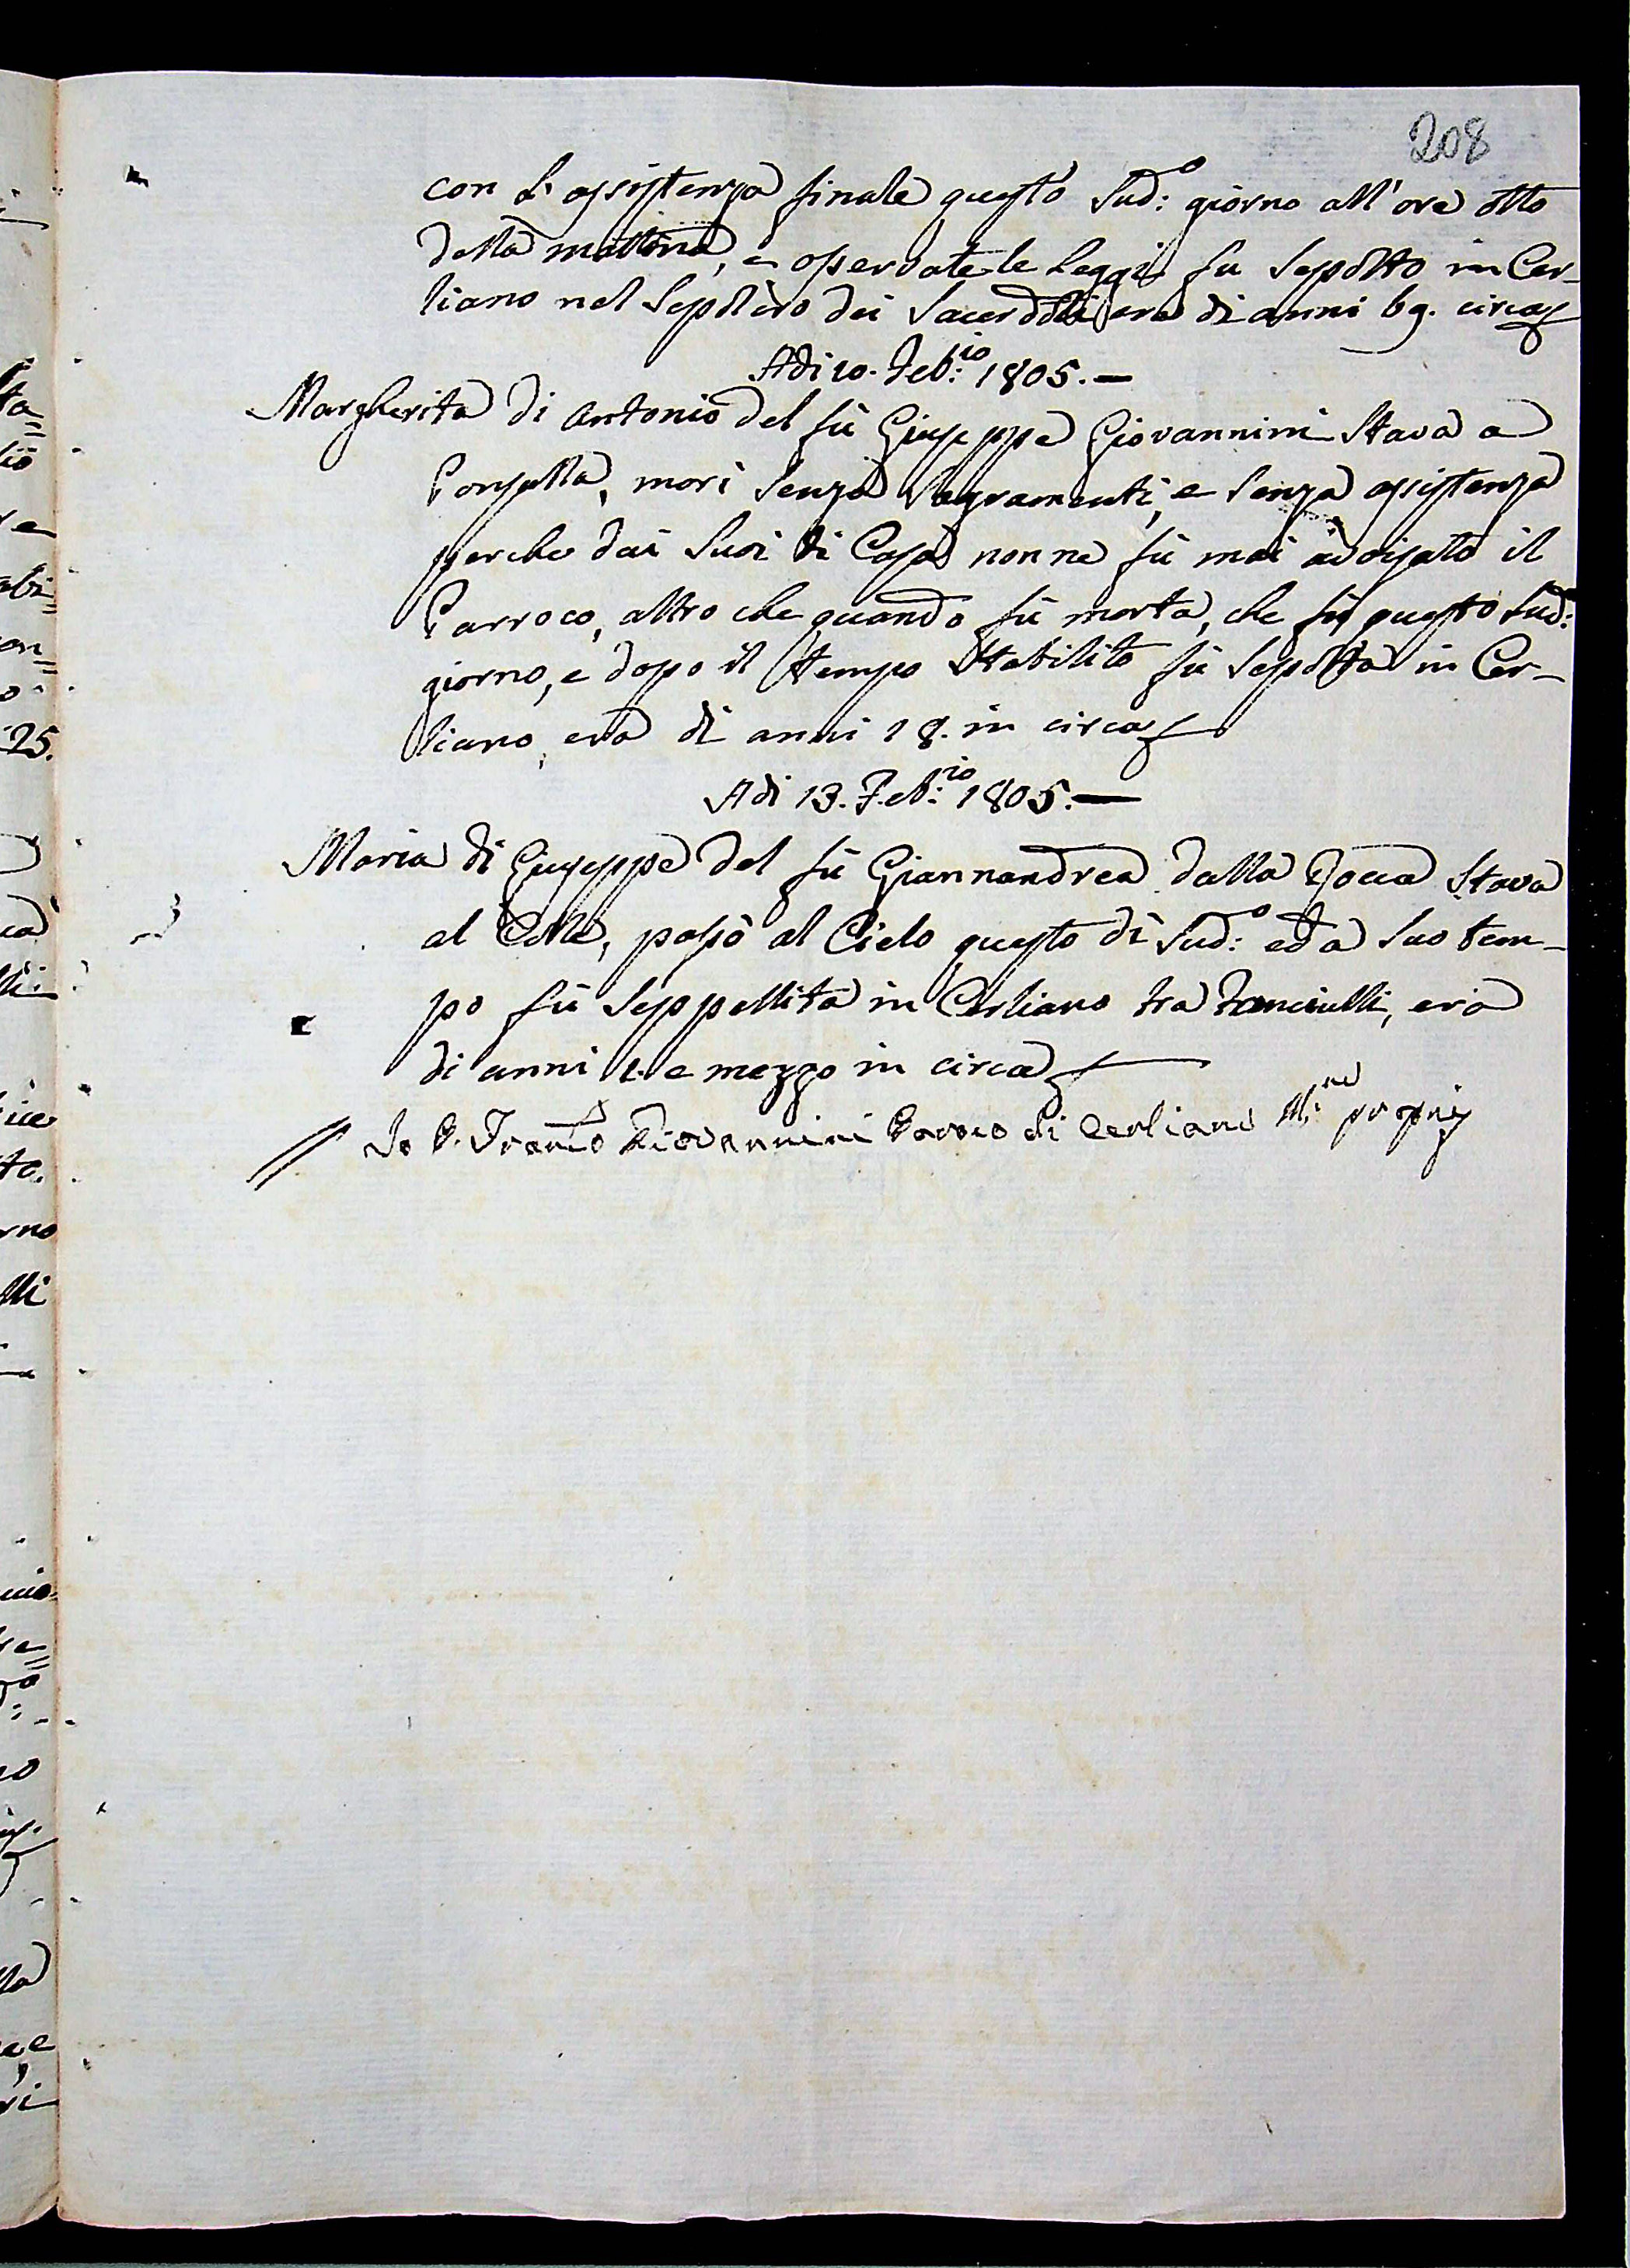 208
con l'assistenza finale questo Sud:o giorno all'ore otto
della mattina, e osservate le Leggi fu Sepolto in Cer-
liano nel Sepolcro dei Sacerdoti era di anni 69. circa
Adi 10. Feb:io 1805.—
Margherita di Antonio del fù Giuseppe Giovannini Stava a
morì Senza Sagramenti, e Senza assistenza
perche dai Suoi di Casa non ne fù mai avvisato il
Parroco, altro che quando fù morta, che fù questo Sud:
giorno, e dopo il tempo Stabilito fù Sepolta in Cer-
liano, era di anni 18. in circa
Adi 13. Feb:io 1805.—
Maria di Giuseppe del fù Giannandrea dalla Stava
al Colle, passò al Cielo questo dì Sud:o ed a Suo tem-
po fù Seppellita in Cerliano tra Fanciulli, era
di anni 1. e mezzo in circa
Io D. Franco Giovannini Paroco di Cerliano M:no propria